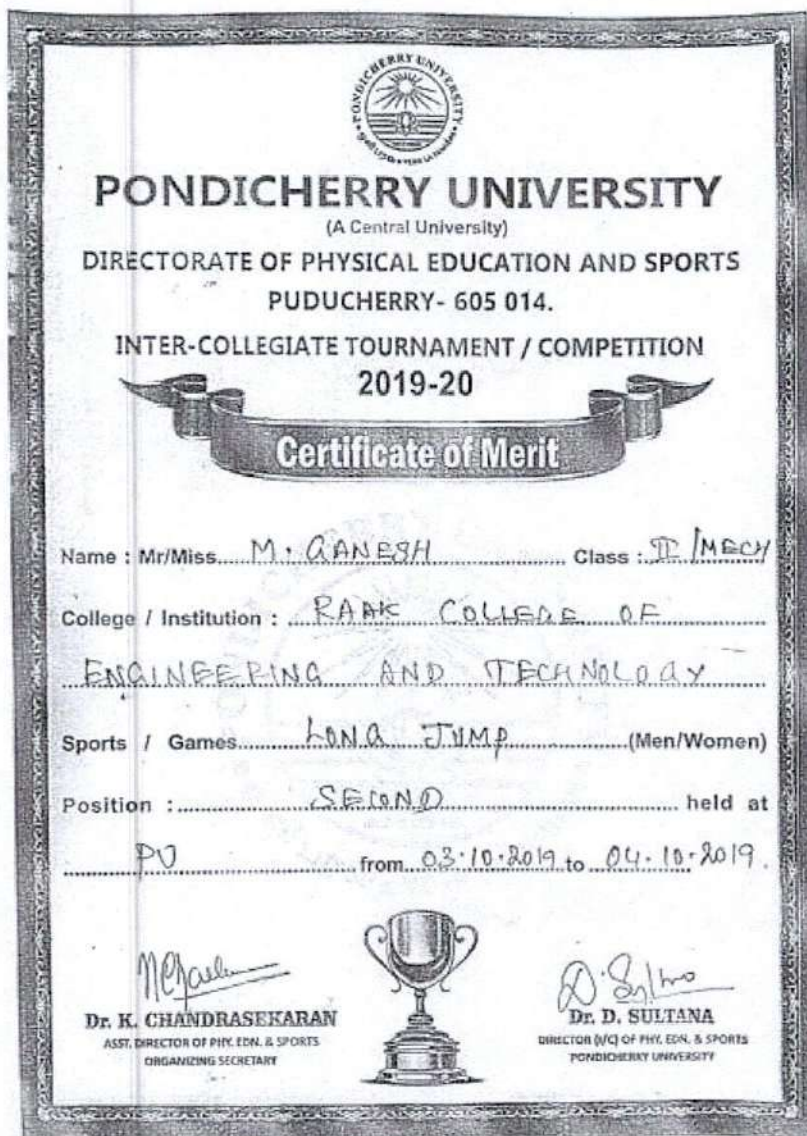 PONDICHERRY UNIVERSITY
PONDICHERRY UNIVERSITY
(A Central University)
DIRECTORATE OF PHYSICAL EDUCATION AND SPORTS
PUDUCHERRY- 605 014.
INTER-COLLEGIATE TOURNAMENT / COMPETITION
2019-20
Certificate of Merit
Name : Mr/Miss M. GANESH Class : II / MECH
College / Institution : RAAK COLLEGE OF
ENGINEERING AND TECHNOLOGY
Sports / Games LONG JUMP (Men/Women)
Position : SECOND held at
PU from 03.10.2019 to 04.10.2019.
Dr. K. CHANDRASEKARAN
ASST. DIRECTOR OF PHY. EDN. & SPORTS
ORGANIZING SECRETARY
Dr. D. SULTANA
DIRECTOR (I/C) OF PHY. EDN. & SPORTS
PONDICHERRY UNIVERSITY